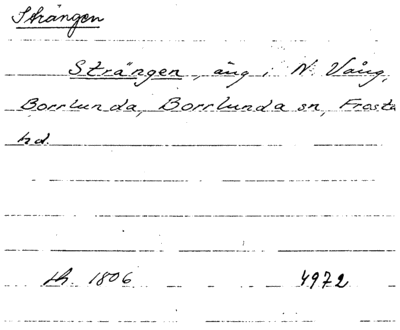 Strängen
Strängen, äng i N. Vång,
Borrlunda, Borrlunda sn, Frosta
hd.
sk. 1806 4972